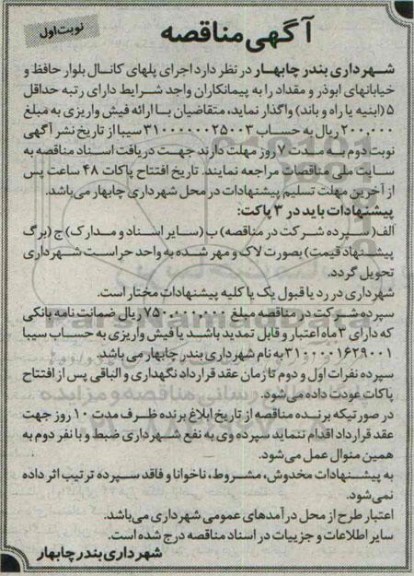 نوبت اول
آگهی مناقصه
شهرداری بندر چابهار در نظر دارد اجرای پلهای کانال بلوار حافظ و
خیابانهای ابوذر و مقداد را به پیمانکاران واجد شرایط دارای رتبه حداقل
۵ (ابنیه یا راه و باند) واگذار نماید، متقاضیان با ارائه فیش واریزی به مبلغ
۲۰۰,۰۰۰ ریال به حساب ۳۱۰۰۰۰۰۰۲۵۰۰۳ سیبا از تاریخ نشر آگهی
نوبت دوم به مدت ۷ روز مهلت دارند جهت دریافت اسناد مناقصه به
سایت ملی مناقصات مراجعه نمایند. تاریخ افتتاح پاکات ۴۸ ساعت پس
از آخرین مهلت تسلیم پیشنهادات در محل شهرداری چابهار می‌باشد.
پیشنهادات باید در ۳ پاکت:
الف(سپرده شرکت در مناقصه) ب (سایر اسناد و مدارک) ج (برگ
پیشنهاد قیمت) بصورت لاک و مهر شده به واحد حراست شهرداری
تحویل گردد.
شهرداری در رد یا قبول یک یا کلیه پیشنهادات مختار است.
سپرده شرکت در مناقصه مبلغ ۷۵۰,۰۰۰,۰۰۰ ریال ضمانت نامه بانکی
که دارای ۳ ماه اعتبار و قابل تمدید باشد یا فیش واریزی به حساب سیبا
۳۱۰۰۰۰۱۶۳۹۰۰۱ به نام شهرداری بندر چابهار می باشد.
سپرده نفرات اول و دوم تا زمان عقد قرارداد نگهداری و الباقی پس از افتتاح
پاکات عودت داده می‌شود.
در صورتیکه برنده مناقصه از تاریخ ابلاغ برنده ظرف مدت ۱۰ روز جهت
عقد قرارداد اقدام ننماید سپرده وی به نفع شهرداری ضبط و با نفر دوم به
همین منوال عمل می‌شود.
به پیشنهادات مخدوش، مشروط، ناخوانا و فاقد سپرده ترتیب اثر داده
نمی‌شود.
اعتبار طرح از محل درآمدهای عمومی شهرداری می‌باشد.
سایر اطلاعات و جزییات در اسناد مناقصه درج شده است.
شهرداری بندر چابهار